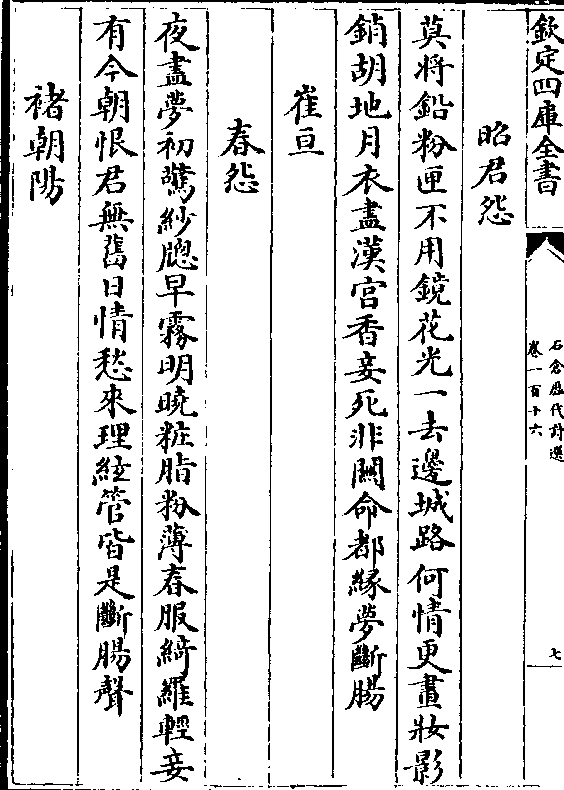 欽定四庫全書
石倉歷代詩選
卷一百十六
七
昭君怨
莫將鉛粉匣不用鏡花光一去邊城路何情更畫妝影
銷胡地月衣盡漢宮香妾死非闗命都緣夢斷腸
崔亘
春怨
夜盡夢初驚紗牎早霧明曉粧脂粉薄春服綺羅輕妾
有今朝恨君無舊日情愁來理絃管皆是斷腸聲
褚朝陽